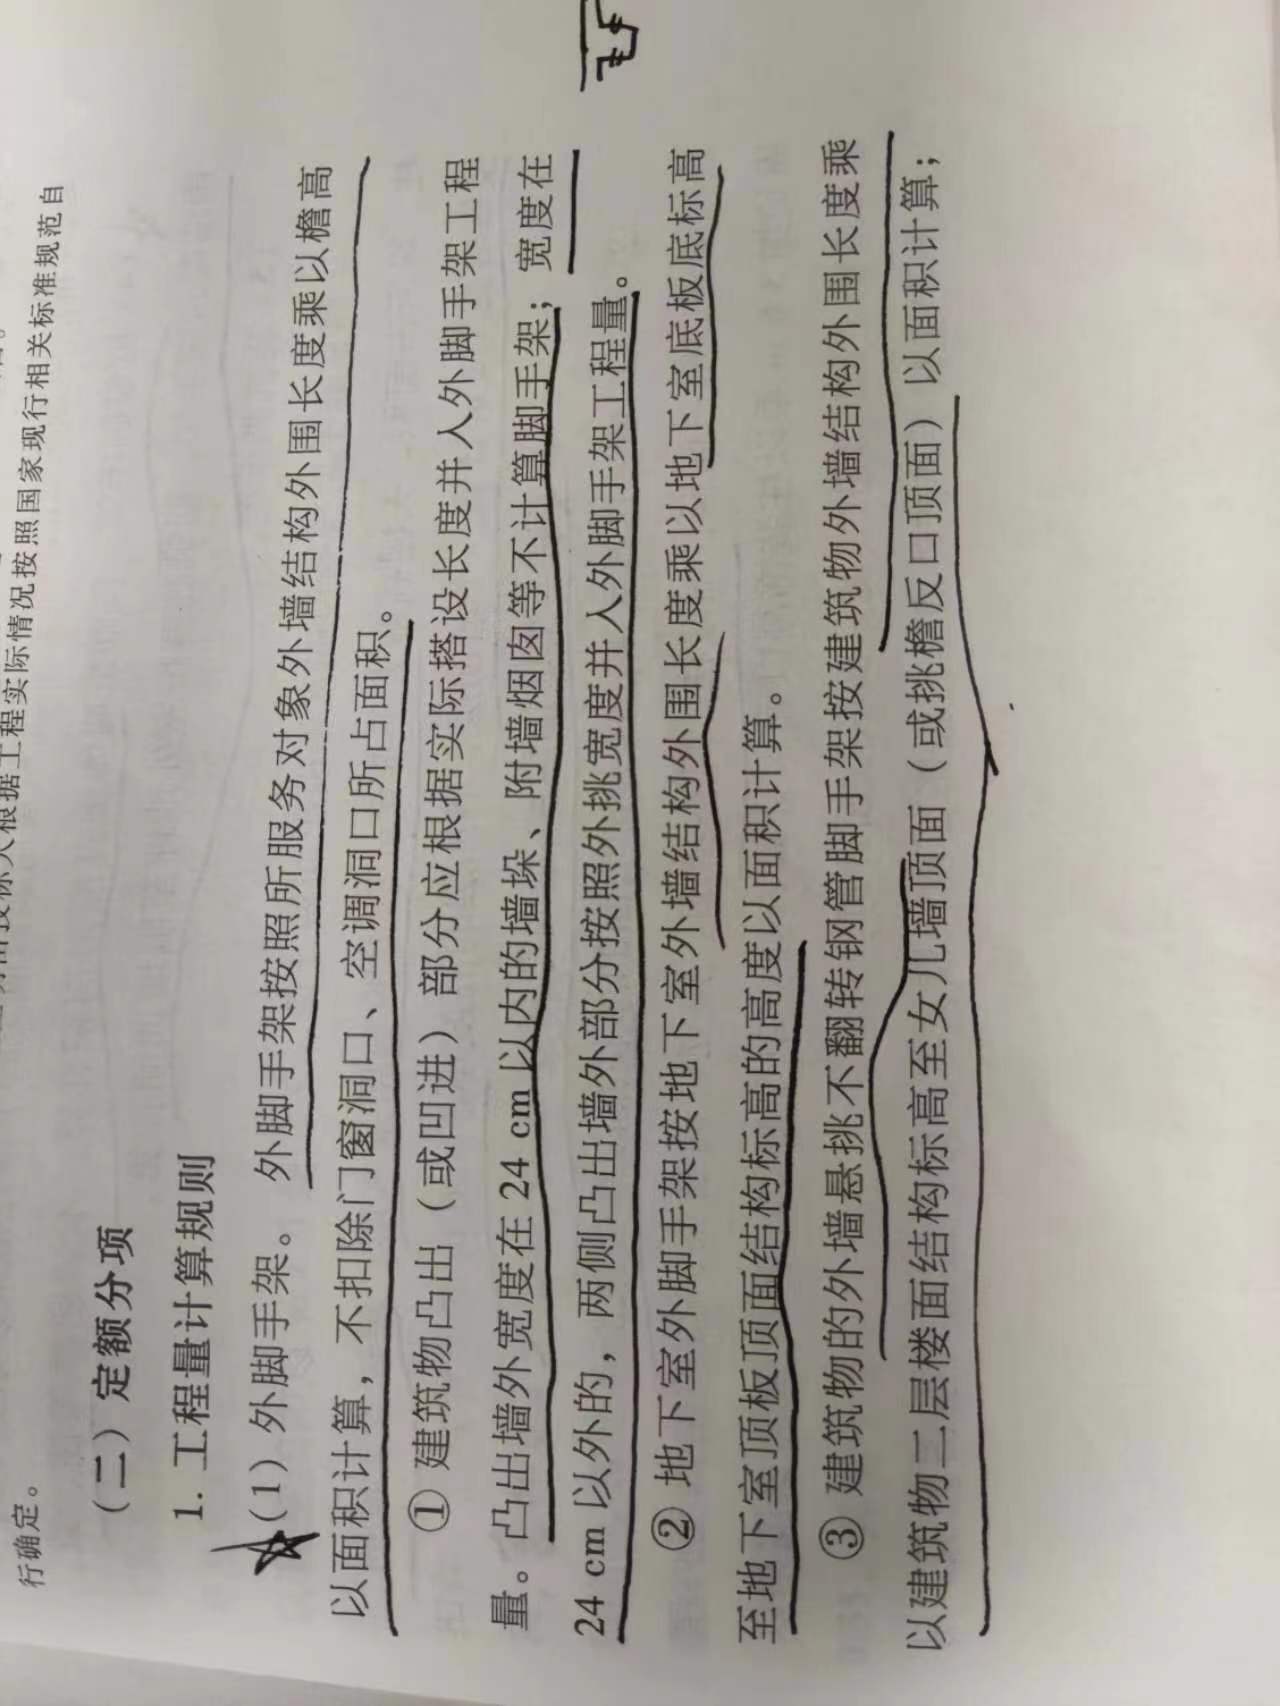 根据工程实际情况按照国家现行相关标准规范自
行确定。
（二）定额分项
1. 工程量计算规则
（1）外脚手架。 外脚手架按照所服务对象外墙结构外围长度乘以檐高
以面积计算，不扣除门窗洞口、空调洞口所占面积。
① 建筑物凸出（或凹进）部分应根据实际搭设长度并入外脚手架工程
量。凸出墙外宽度在 24 cm 以内的墙垛、附墙烟囱等不计算脚手架；宽度在
24 cm 以外的，两侧凸出墙外部分按照外挑宽度并入外脚手架工程量。
② 地下室外脚手架按地下室外墙结构外围长度乘以地下室底板底标高
至地下室顶板顶面结构标高的高度以面积计算。
③ 建筑物的外墙悬挑不翻转钢管脚手架按建筑物外墙结构外围长度乘
以建筑物二层楼面结构标高至女儿墙顶面（或挑檐反口顶面）以面积计算；